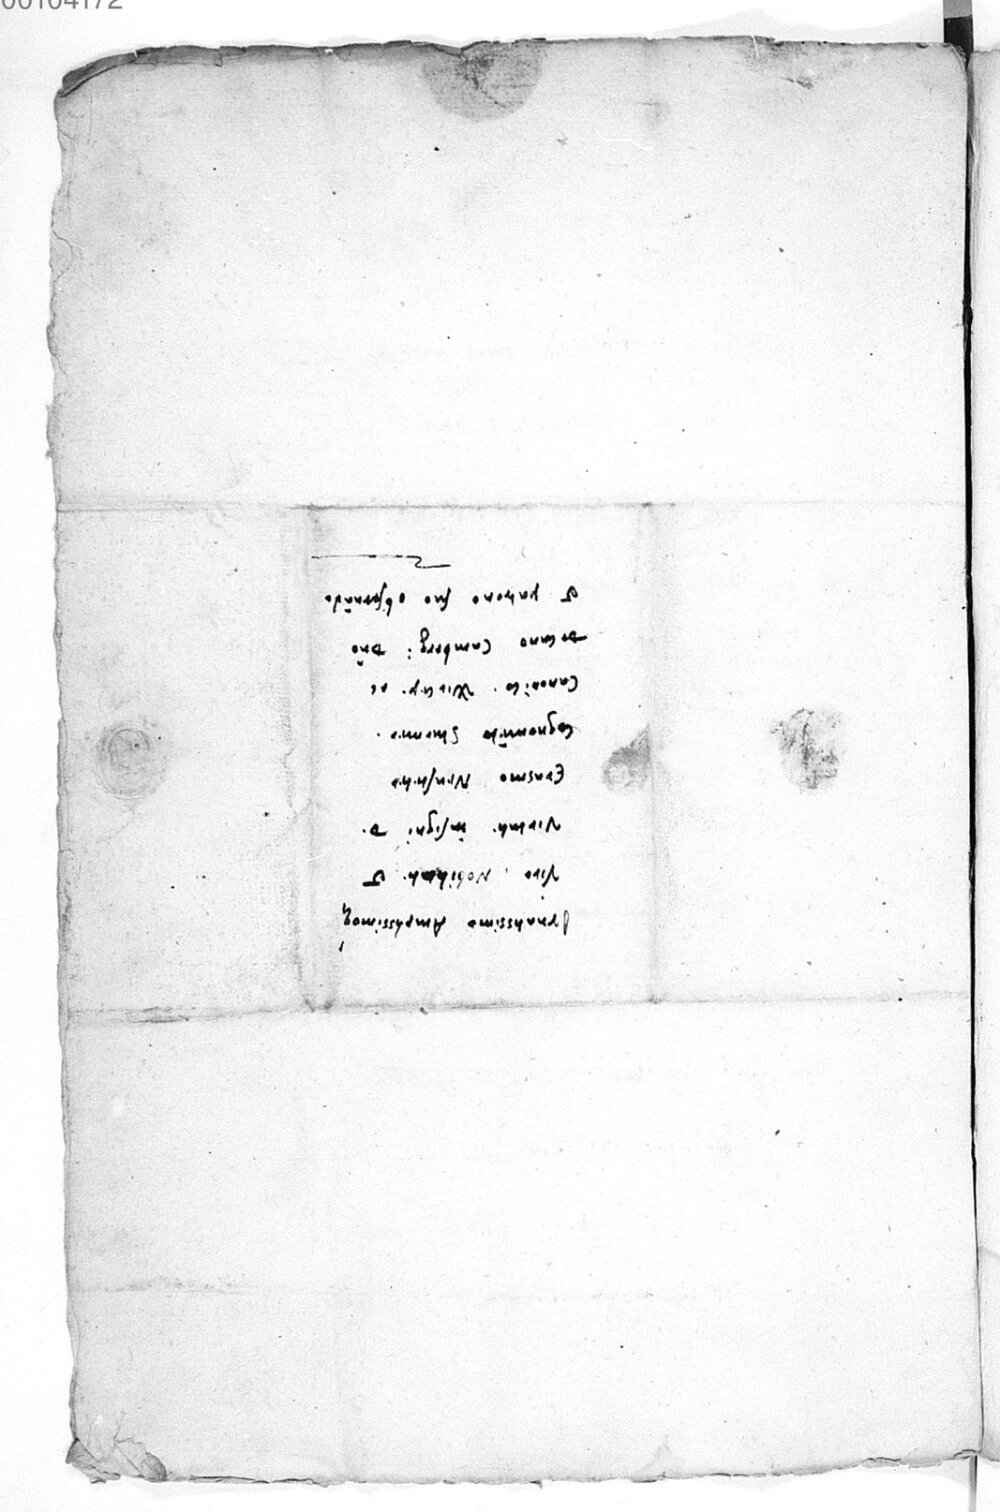 00104172
Ornatissimo Amplissimoq
Viro, Nobilitat. &
Virtut. insigni D.
Erasmo Neustetter
Cognomēto Sturmer.
Canonico. Wircep. ac
Decano Camberg: Dño
& patrono suo obseruādo